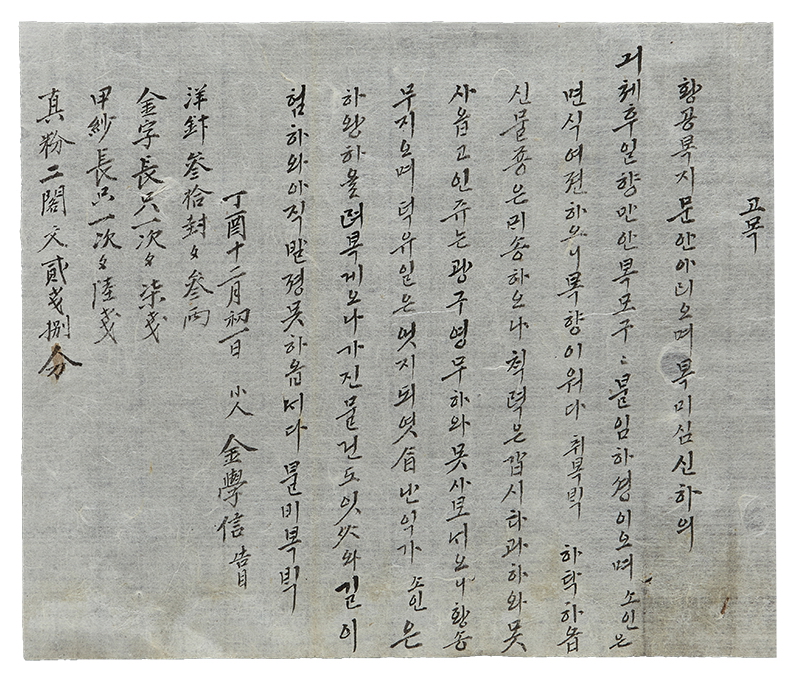 고목
황공복지 문안아뢰오며 복미심 신하의
긔쳬후일향만안복모구〻 불임하졍이오며 소인은
면식여젼하오니 복향이워다 취복븩 하탁하옵
신물죵은 긔송하오나 쳑력은 갑시타과하와 못
사옵고 인쥬는 광구영무하와 못사로셔오니 황송
무지오며 덕유일은 엿지되엿 난익가 소인은
하왕하올 복계오나 가진물건도 잇 와 길이
험하와 아직 발졍못하옵너다 물비복븩
丁酉十二月初一日 小人 金學信 告目
洋針 參拾封文 參兩
金字長只一次文 柒戔
甲紗長只一次文 陸戔
真粉二閣文貳戔捌分